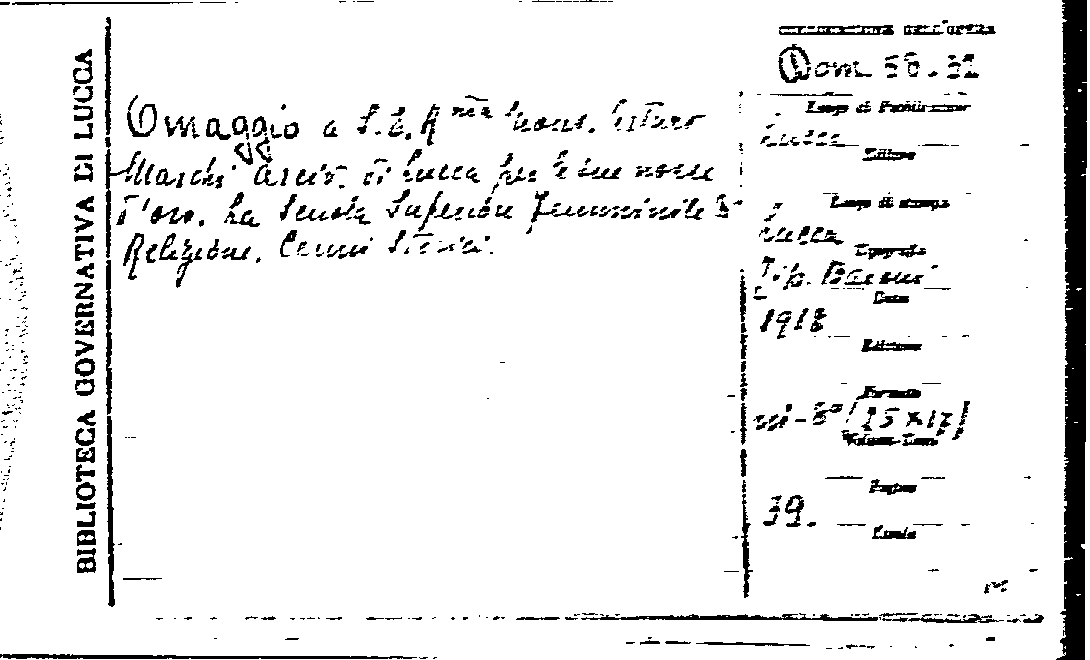 BIBLIOTECA GOVERNATIVA DI LUCCA
Omaggio a S. E. R ma Mons. Arturo
Marchi Arciv. di Lucca per le sue nozze
d'oro. La Scuola Superiore Femminile di
Religione. Cenni Storici.
DELL'OPERA
Dom 58.32
Luogo di Pubblicazione
Lucca
Editore
Luogo di stampa
Lucca
Tipografia
Tip. Baroni
Data
1918
Edizione
Formato
in-8° (25x17)
Volume-Tomo
Pagine
39.